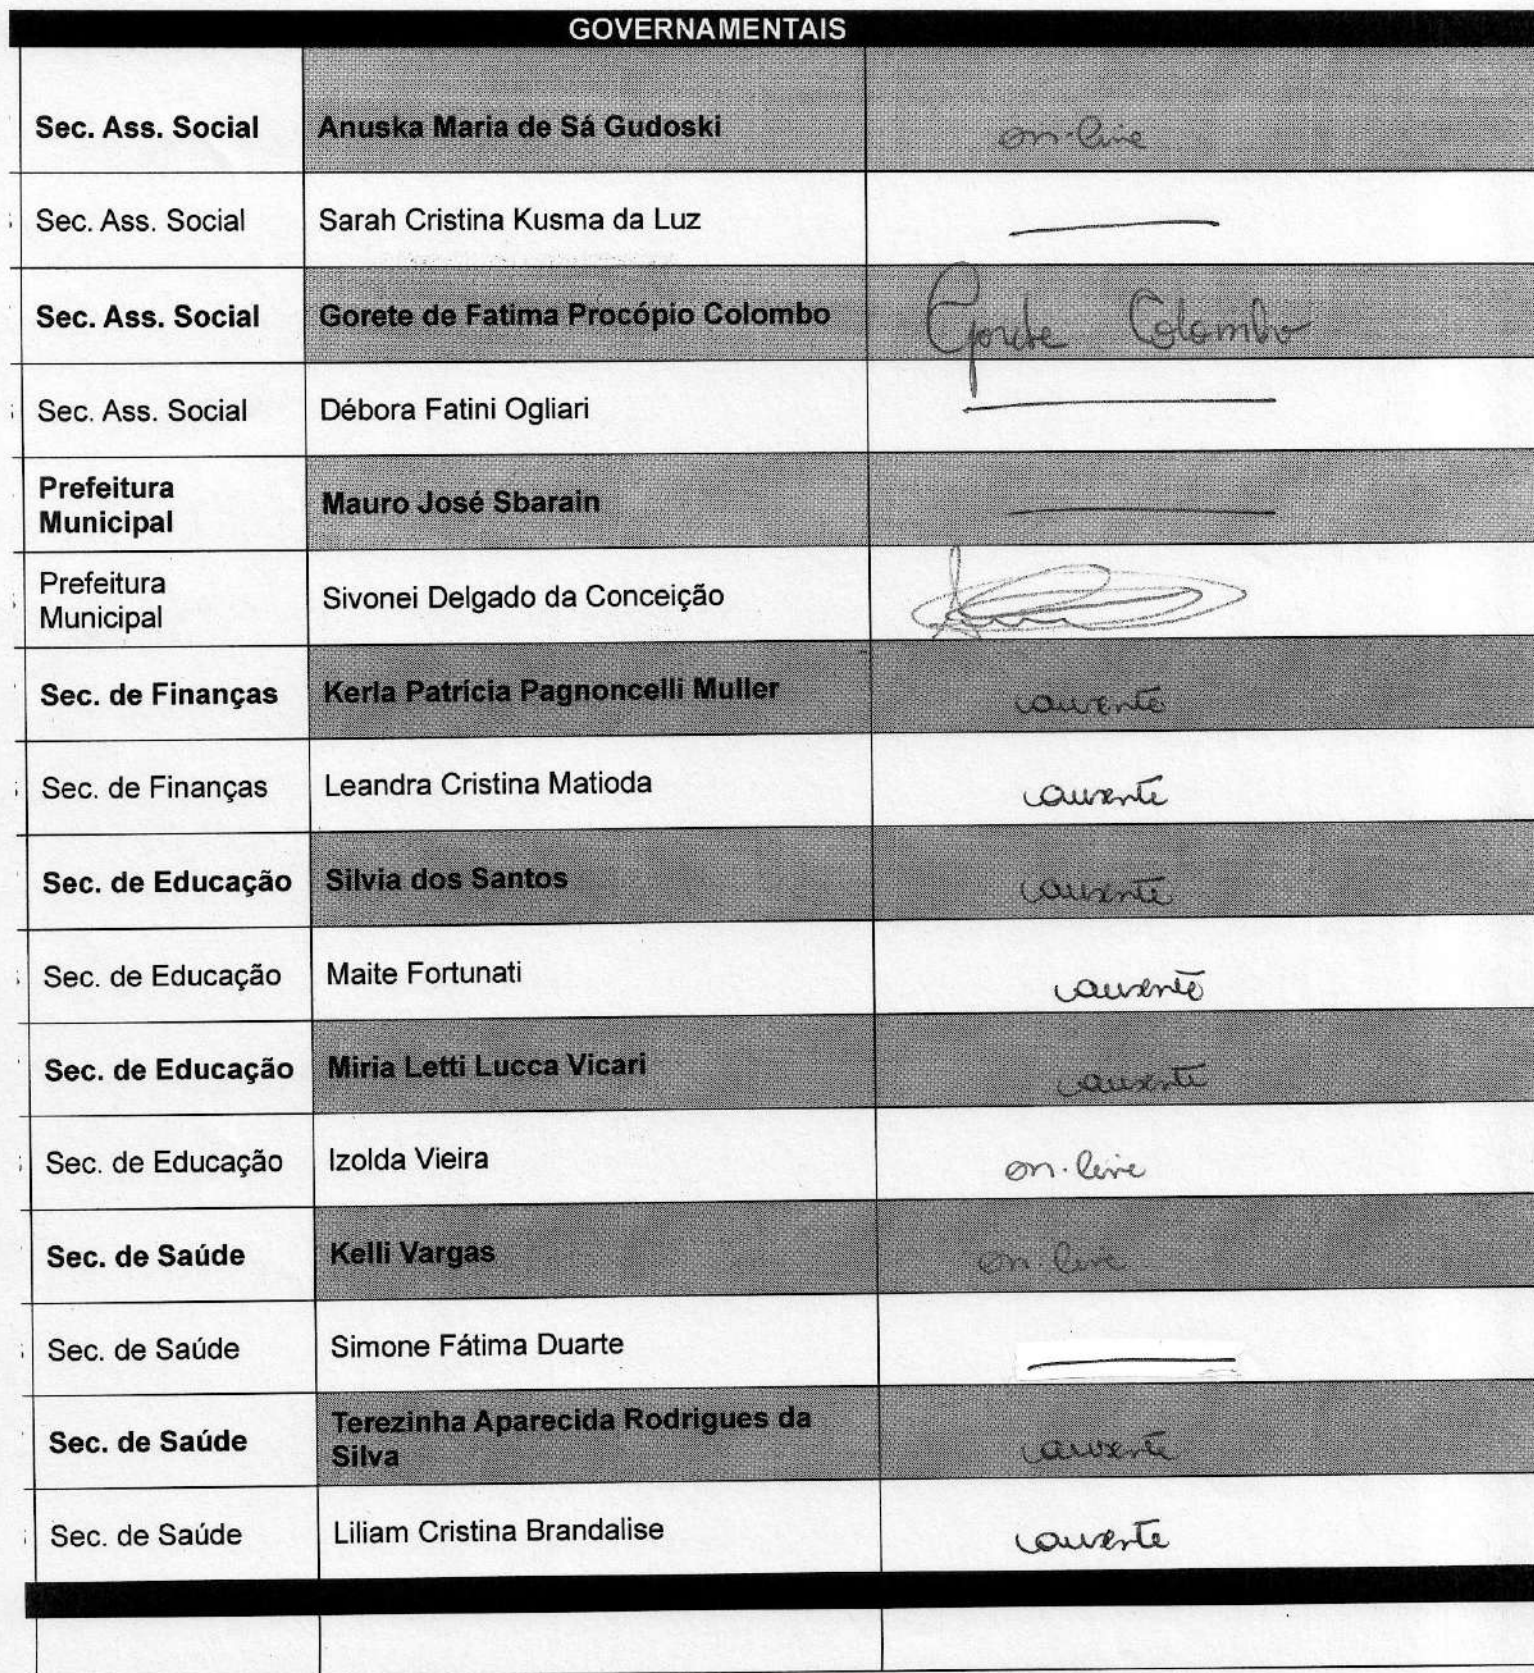 GOVERNAMENTAIS
Sec. Ass. Social Anuska Maria de Sá Gudoski on-line
Sec. Ass. Social Sarah Cristina Kusma da Luz
Sec. Ass. Social Gorete de Fatima Procópio Colombo Gorete Colombo
Sec. Ass. Social Débora Fatini Ogliari
Prefeitura
Municipal Mauro José Sbarain
Prefeitura
Municipal Sivonei Delgado da Conceição
Sec. de Finanças Kerla Patrícia Pagnoncelli Muller ausente
Sec. de Finanças Leandra Cristina Matioda ausente
Sec. de Educação Silvia dos Santos ausente
Sec. de Educação Maite Fortunati ausente
Sec. de Educação Miria Letti Lucca Vicari ausente
Sec. de Educação Izolda Vieira on-line
Sec. de Saúde Kelli Vargas on-line
Sec. de Saúde Simone Fátima Duarte
Sec. de Saúde Terezinha Aparecida Rodrigues da
Silva ausente
Sec. de Saúde Liliam Cristina Brandalise ausente